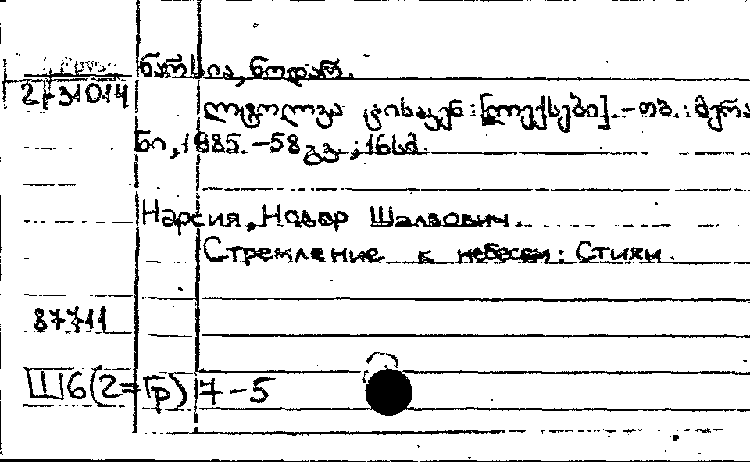 ნარსია, ნოდარ.
2-31014
ლტოლვა ცისაკენ: [ლექსები]. – თბ.: მერა
ნი, 1985. – 58 გვ.; 16სმ.
Нарсия, Нодар Шалвович.
Стремление к небесам: Стихи.
87711
Ш6(2=Гр)7-5